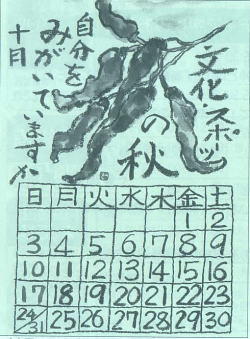 文化・スポーツ
の秋
自分を
みがいていますか
十月
日 月 火 水 木 金 土
1 2
3 4 5 6 7 8 9
10 11 12 13 14 15 16
17 18 19 20 21 22 23
24/31 25 26 27 28 29 30